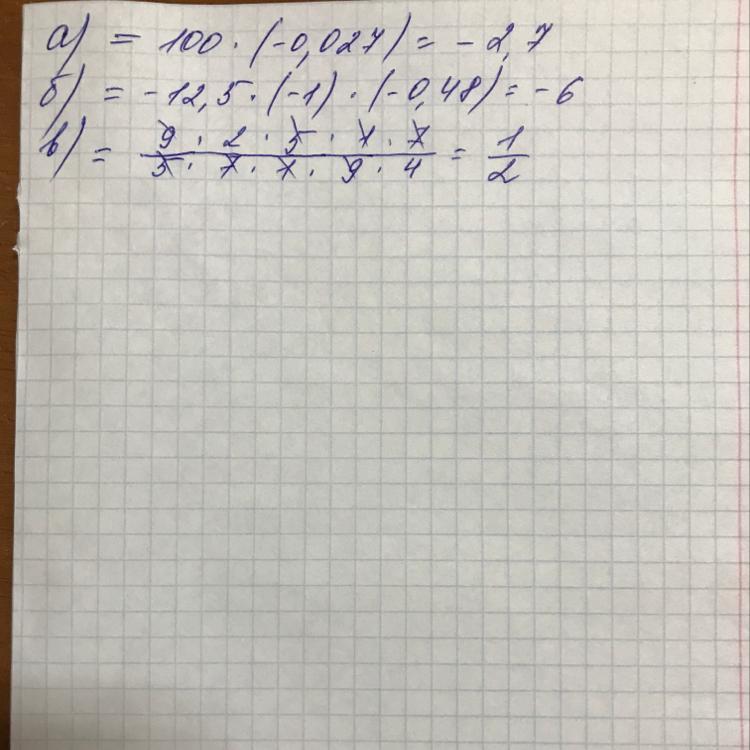 а) = 100 · (-0,027) = -2,7
б) = -12,5 · (-1) · (-0,48) = -6
в) = 9 · 2 · 5 · 7 · 7 / 5 · 7 · 7 · 9 · 4 = 1/2